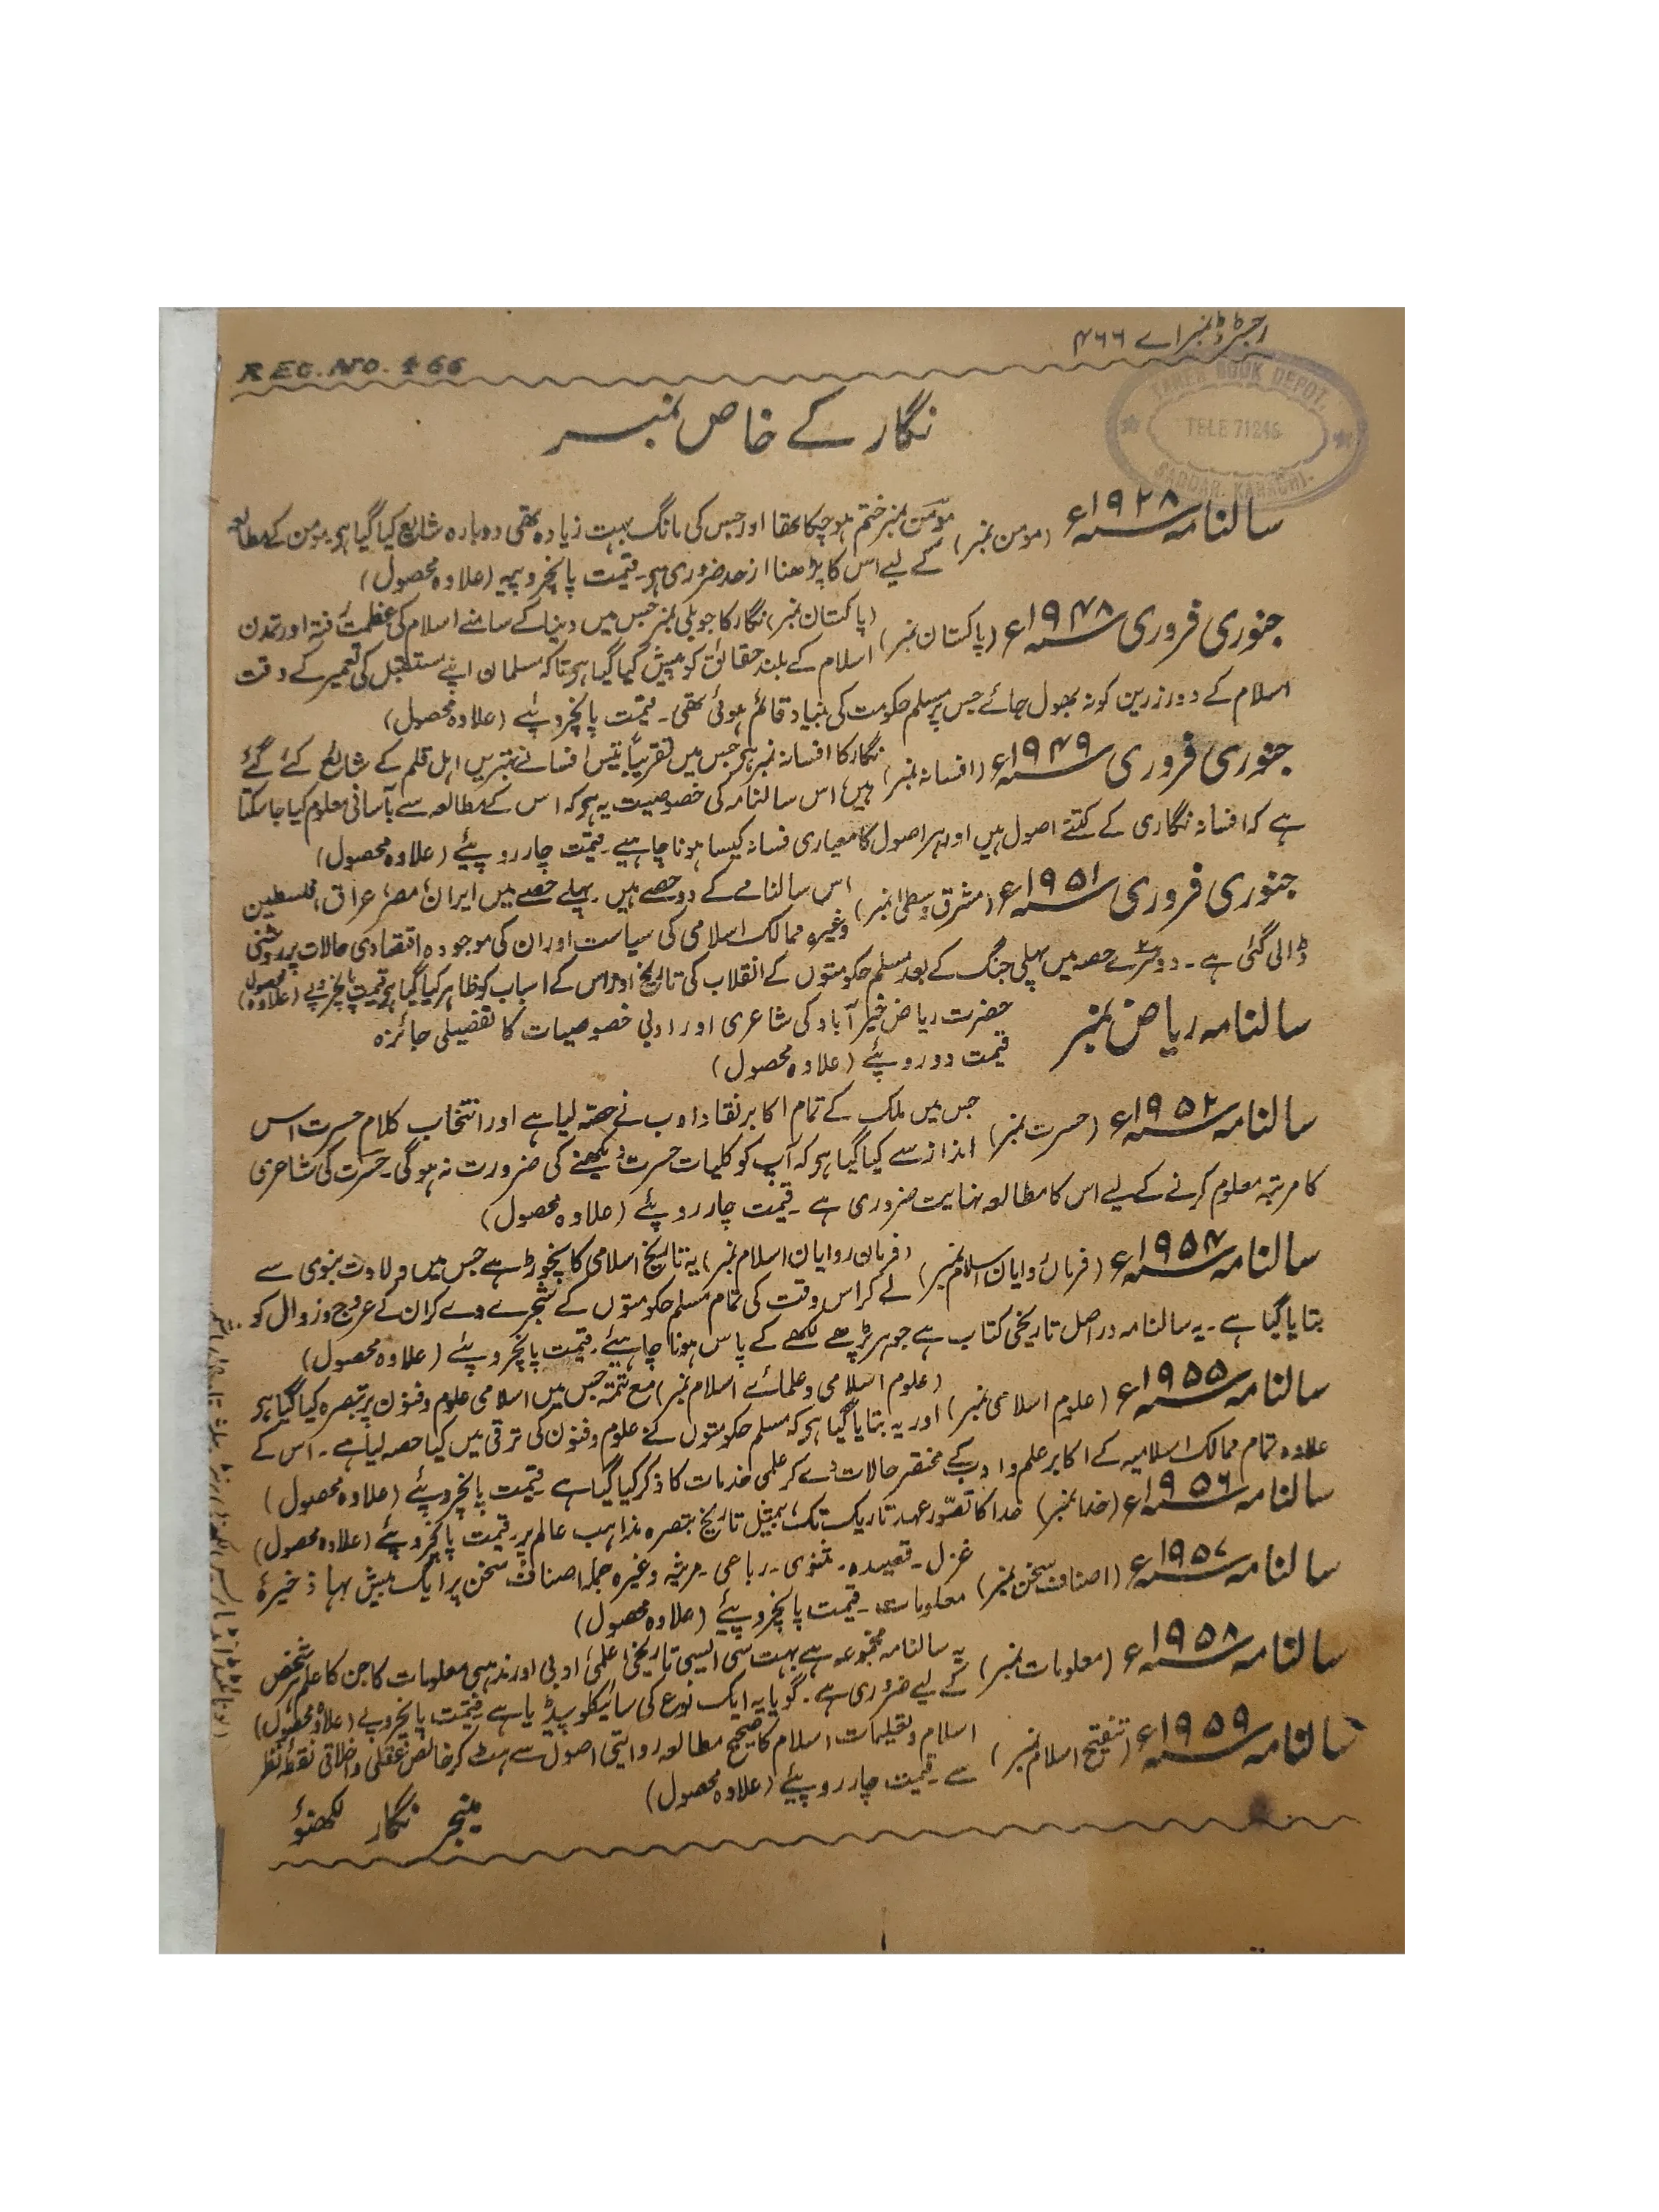 رجسٹرڈ نمبر اے ۴۶۶
REG. NO. 466
TAHER BOOK DEPOT.
TELE 71246
SADDAR. KARACHI.
نگار کے خاص نمبر
سالنامہ ۱۹۲۸ء (مومن نمبر) مومن نمبر ختم ہو چکا تھا اور جس کی مانگ بہت زیادہ تھی دوبارہ شایع کیا گیا ہو۔ مومن کے مطالعہ
کے لیے اس کا پڑھنا ازحد ضروری ہو۔ قیمت پانچروپیہ (علاوہ محصول)
جنوری فروری ۱۹۴۸ء (پاکستان نمبر) (پاکستان نمبر) نگار کا جوبلی نمبر جس میں دنیا کے سامنے اسلام کی عظمت رفتہ اور تمدن
اسلام کے بلند حقائق کو پیش کیا گیا ہو تاکہ مسلمان اپنے مستقبل کی تعمیر کے وقت
اسلام کے دور زرین کو نہ بھول جائے جس پر مسلم حکومت کی بنیاد قائم ہوئی تھی۔ قیمت پانچروپئے (علاوہ محصول)
جنوری فروری ۱۹۴۹ء (افسانہ نمبر) نگار کا افسانہ نمبر ہو جس میں تقریباً تیس افسانے بہتریں اہل قلم کے شایع کئے گئے
ہیں، اس سالنامہ کی خصوصیت یہ ہو کہ اس کے مطالعہ سے بآسانی معلوم کیا جا سکتا
ہے کہ افسانہ نگاری کے کتنے اصول ہیں اور ہر اصول کا معیاری فسانہ کیسا ہونا چاہیے۔ قیمت چار روپیئے (علاوہ محصول)
جنوری فروری ۱۹۵۱ء (مشرق وسطیٰ نمبر) اس سالنامے کے دو حصے ہیں۔ پہلے حصے میں ایران، مصر، عراق، فلسطین
وغیرہ ممالک اسلامی کی سیاست اور ان کی موجودہ اقتصادی حالات پر روشنی
ڈالی گئی ہے۔ دوسرے حصہ میں پہلی جنگ کے بعد مسلم حکومتوں کے انقلاب کی تاریخ اور اس کے اسباب کو ظاہر کیا گیا ہو قیمت پانچروپے (علاوہ محصول)
سالنامہ ریاض نمبر حضرت ریاض خیر آباد کی شاعری اور ادبی خصوصیات کا تفصیلی جائزہ
قیمت دو روپئے (علاوہ محصول)
سالنامہ ۱۹۵۲ء (حسرت نمبر) جس میں ملک کے تمام اکابر نقاد ادب نے حصہ لیا ہے اور انتخاب کلام حسرت اس
انداز سے کیا گیا ہو کہ آپ کو کلیات حسرت دیکھنے کی ضرورت نہ ہوگی۔ حسرت کی شاعری
کا مرتبہ معلوم کرنے کے لیے اس کا مطالعہ نہایت ضروری ہے۔ قیمت چار روپئے (علاوہ محصول)
سالنامہ ۱۹۵۴ء (فرمانروایان اسلام نمبر) (فرمان روایان اسلام نمبر) یہ تاریخ اسلامی کا نچوڑ ہے جس میں ولادت نبوی سے
لے کر اس وقت کی تمام مسلم حکومتوں کے شجرے دے کر ان کے عروج و زوال کو
بتایا گیا ہے۔ یہ سالنامہ دراصل تاریخی کتاب ہے جو ہر پڑھے لکھے کے پاس ہونا چاہیئے۔ قیمت پانچروپئے (علاوہ محصول)
سالنامہ ۱۹۵۵ء (علوم اسلامی نمبر) (علوم اسلامی و علمائے اسلام نمبر) مع تتمہ جس میں اسلامی علوم و فنون پر تبصرہ کیا گیا ہو
اور یہ بتایا گیا ہو کہ مسلم حکومتوں کے علوم و فنون کی ترقی میں کیا حصہ لیا ہے۔ اس کے
علاوہ تمام ممالک اسلامیہ کے اکابر علم و ادب کے مختصر حالات دے کر علمی خدمات کا ذکر کیا گیا ہے قیمت پانچروپئے (علاوہ محصول)
سالنامہ ۱۹۵۶ء (خدا نمبر) خدا کا تصوّر عہد تاریک تک، بمثیل تاریخ تبصرہ مذاہب عالم پر۔ قیمت پانچروپئے (علاوہ محصول)
سالنامہ ۱۹۵۷ء (اصناف سخن نمبر) غزل۔ قصیدہ۔ مثنوی۔ رباعی۔ مرثیہ وغیرہ جملہ اصناف سخن پر ایک بیش بہا ذخیرۂ
معلومات۔ قیمت پانچروپیئے (علاوہ محصول)
سالنامہ ۱۹۵۸ء (معلومات نمبر) یہ سالنامہ مجموعہ ہے بہت سی ایسی تاریخی، علمی، ادبی اور مذہبی معلومات کا جن کا علم ہر شخص
کے لیے ضروری ہے۔ گویا یہ ایک نوع کی سائیکلوپیڈیا ہے۔ قیمت پانچروپے (علاوہ محصول)
سالنامہ ۱۹۵۹ء (تنقیح اسلام نمبر) اسلام و تعلیمات اسلام کا صحیح مطالعہ روایتی اصول سے ہٹ کر خالص عقلی و اخلاقی نقطۂ نظر
سے۔ قیمت چار روپیئے (علاوہ محصول)
منیجر نگار لکھنؤ